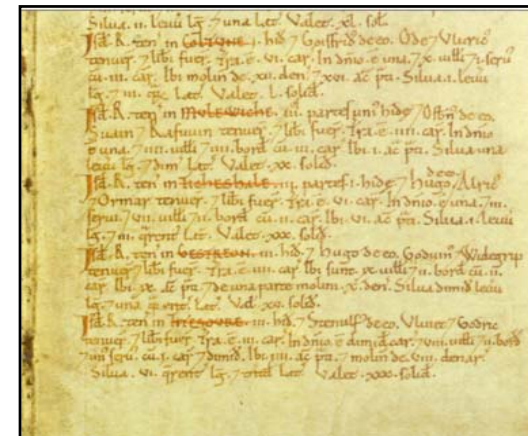 Silua .ii. leuu lg̃ 7 una lat̃. Valet .xl. sol̃.
Isd̃. R. teñ in COLTVNE .i. hid̃ 7 Goisfrid de eo. Ode 7 Vluric̃
tenuer̃ 7 libĩ fuer̃. Tr̃a .e. vi. car̃. In dñio .e. una. 7 x. uilĩ 7 i. seruꝰ
cũ .iii. car̃. Ibi moliñ de .xii. deñ. 7 xvi. ac̃ p̃ti. Silua .i. leuu
lg̃. 7 iii. q̃re lat̃. Valet .l. solid̃.
Isd̃. R. teñ in MVLEWICHE .iii. partes̃ uniꝰ hidę 7 Osb̃n de eo.
Suain 7 Rafuuin tenuer̃ 7 libĩ fuer̃. Tr̃a .e. iiii. car̃. In dñio
.e. una. 7 iiii. uilĩ 7 iiii. bord̃ cũ .iii. car̃. Ibi .i. ac̃ p̃ti. Silua una
leuu lg̃. 7 dim̃ lat̃. Valet .xx. solid̃.
Isd̃. R. teñ in TICHESHALE .iii. partes̃ .i. hidę 7 Hugo de eo. Alric̃
7 Ormar tenuer̃ 7 libĩ fuer̃. Tr̃a .e. vi. car̃. In dñio .e. una. 7 iii.
serui. 7 vii. uilĩ 7 ii. bord̃ cũ .ii. car̃. Ibi .vi. ac̃ p̃ti. Silua .i. leuu
lg̃. 7 iii. q̃rent̃ lat̃. Valet .xxx. solid̃.
Isd̃. R. teñ in .iii. hid̃. 7 Hugo de eo. Goduiñ 7 Widegrip
tenuer̃ 7 libĩ fuer̃. Tr̃a .e. iiii. car̃. Ibi sunt .x. uilĩ 7 ii. bord̃ cũ .ii.
car̃. Ibi .xx. ac̃ p̃ti 7 de una parte molini .x. deñ. Silua dimid̃ leuu
lg̃. 7 una q̃rent̃ lat̃. Val̃ .xx. solid̃.
Isd̃. R. teñ in .iii. hid̃. 7 Stenulf̃ de eo. Vluiet 7 Godric
tenuer̃ 7 libĩ fuer̃. Tr̃a .e. iii. car̃. In dñio .e. dimid̃ car̃. 7 viii. uilĩ 7 ii. bord̃
7 un seruꝰ cũ .i. car̃ 7 dimid̃. Ibi .iiii. ac̃ p̃ti. 7 moliñ de .viii. denar̃.
Silua .vi. q̃rent̃ lg̃. 7 totid̃ lat̃. Valet .xxx. solid̃.